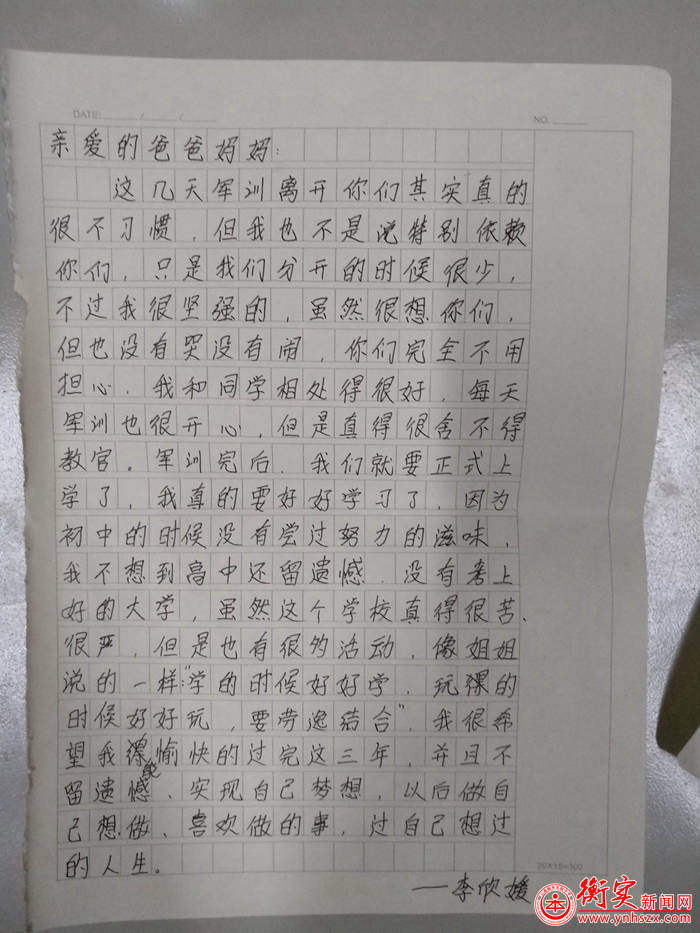 DATE: / /
NO.
亲爱的爸爸妈妈：
这几天军训离开你们其实真的
很不习惯，但我也不是说特别依赖
你们，只是我们分开的时候很少，
不过我很坚强的，虽然很想你们，
但也没有哭没有闹，你们完全不用
担心．我和同学相处得很好，每天
军训也很开心，但是真得很舍不得
教官。军训完后．我们就要正式上
学了，我真的要好好学习了，因为
初中的时候没有尝过努力的滋味，
我不想到高中还留遗憾．没有考上
好的大学，虽然这个学校真得很苦、
很严，但是也有很多活动，像姐姐
说的一样："学的时候好好学，玩的
时候好好玩，要劳逸结合"，我很希
望我能愉快的过完这三年，并且不
留遗憾、实现自己梦想，以后做自
己想做、喜欢做的事，过自己想过
的人生。
——李欣媛
20X15=300
衡实新闻网
www.ynhszx.com